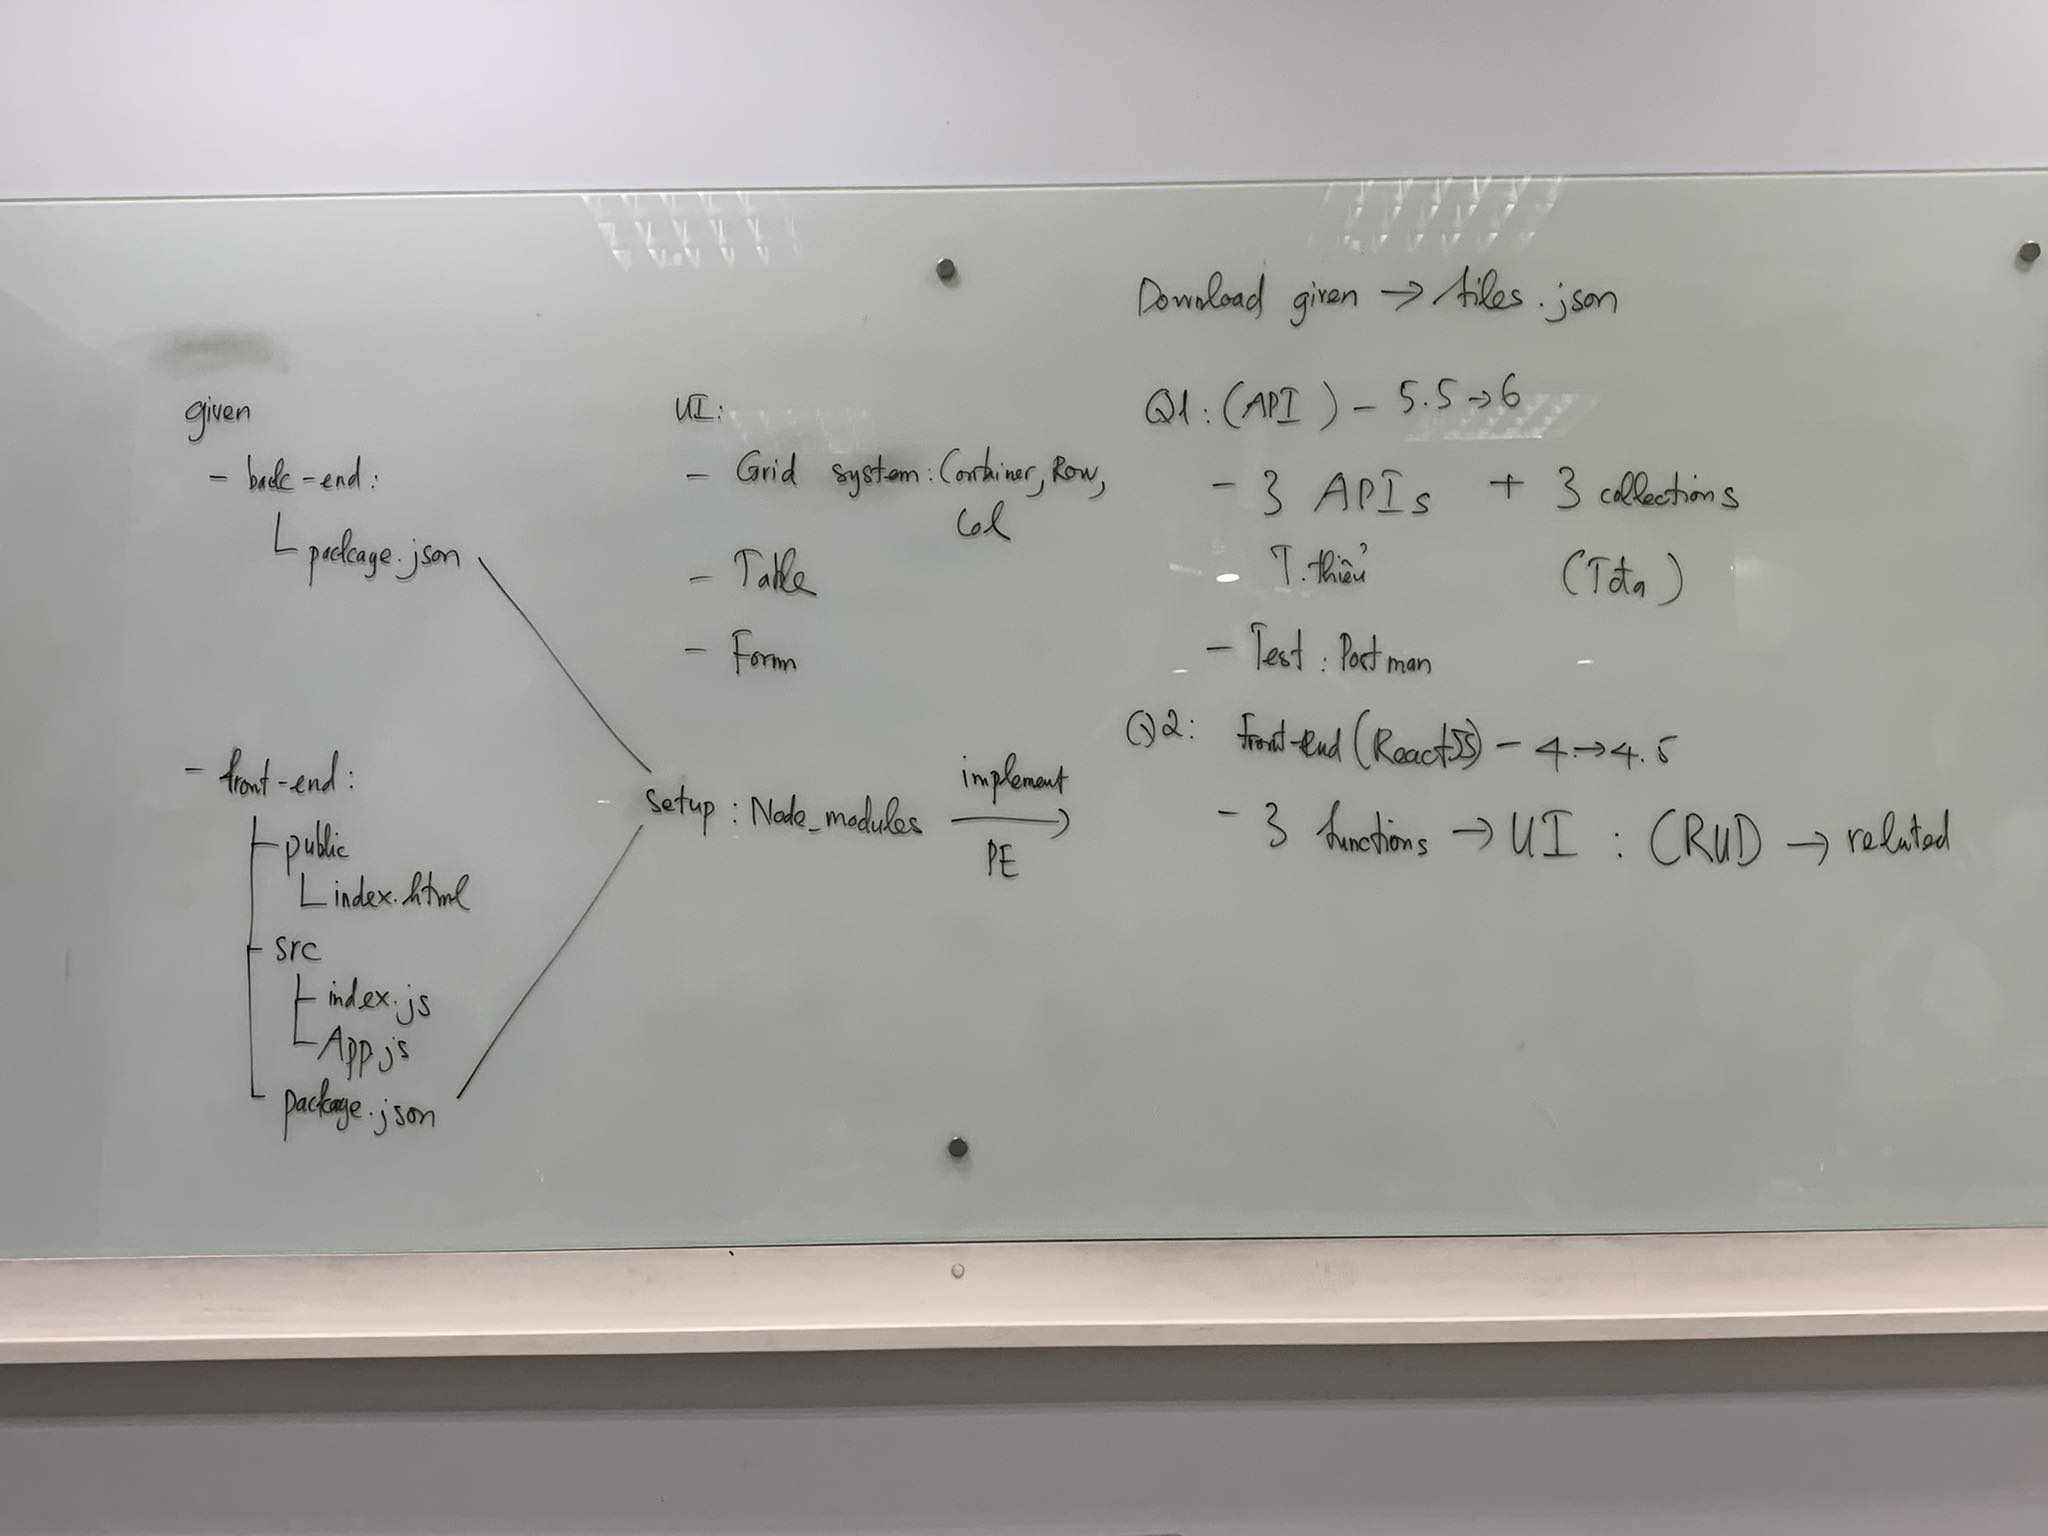 given
- back-end:
└ package.json
- front-end:
├ public
└ index.html
├ src
├ index.js
└ App.js
└ package.json
UI:
- Grid system: Container, Row,
Col
- Table
- Form
setup: Node_modules
implement
PE
Download given → files.json
Q1: (API) - 5.5 → 6
- 3 APIs + 3 collections
T.thiểu (Tđa)
- Test: Postman
Q2: Front-end (ReactJS) - 4 → 4.5
- 3 functions → UI: CRUD → related